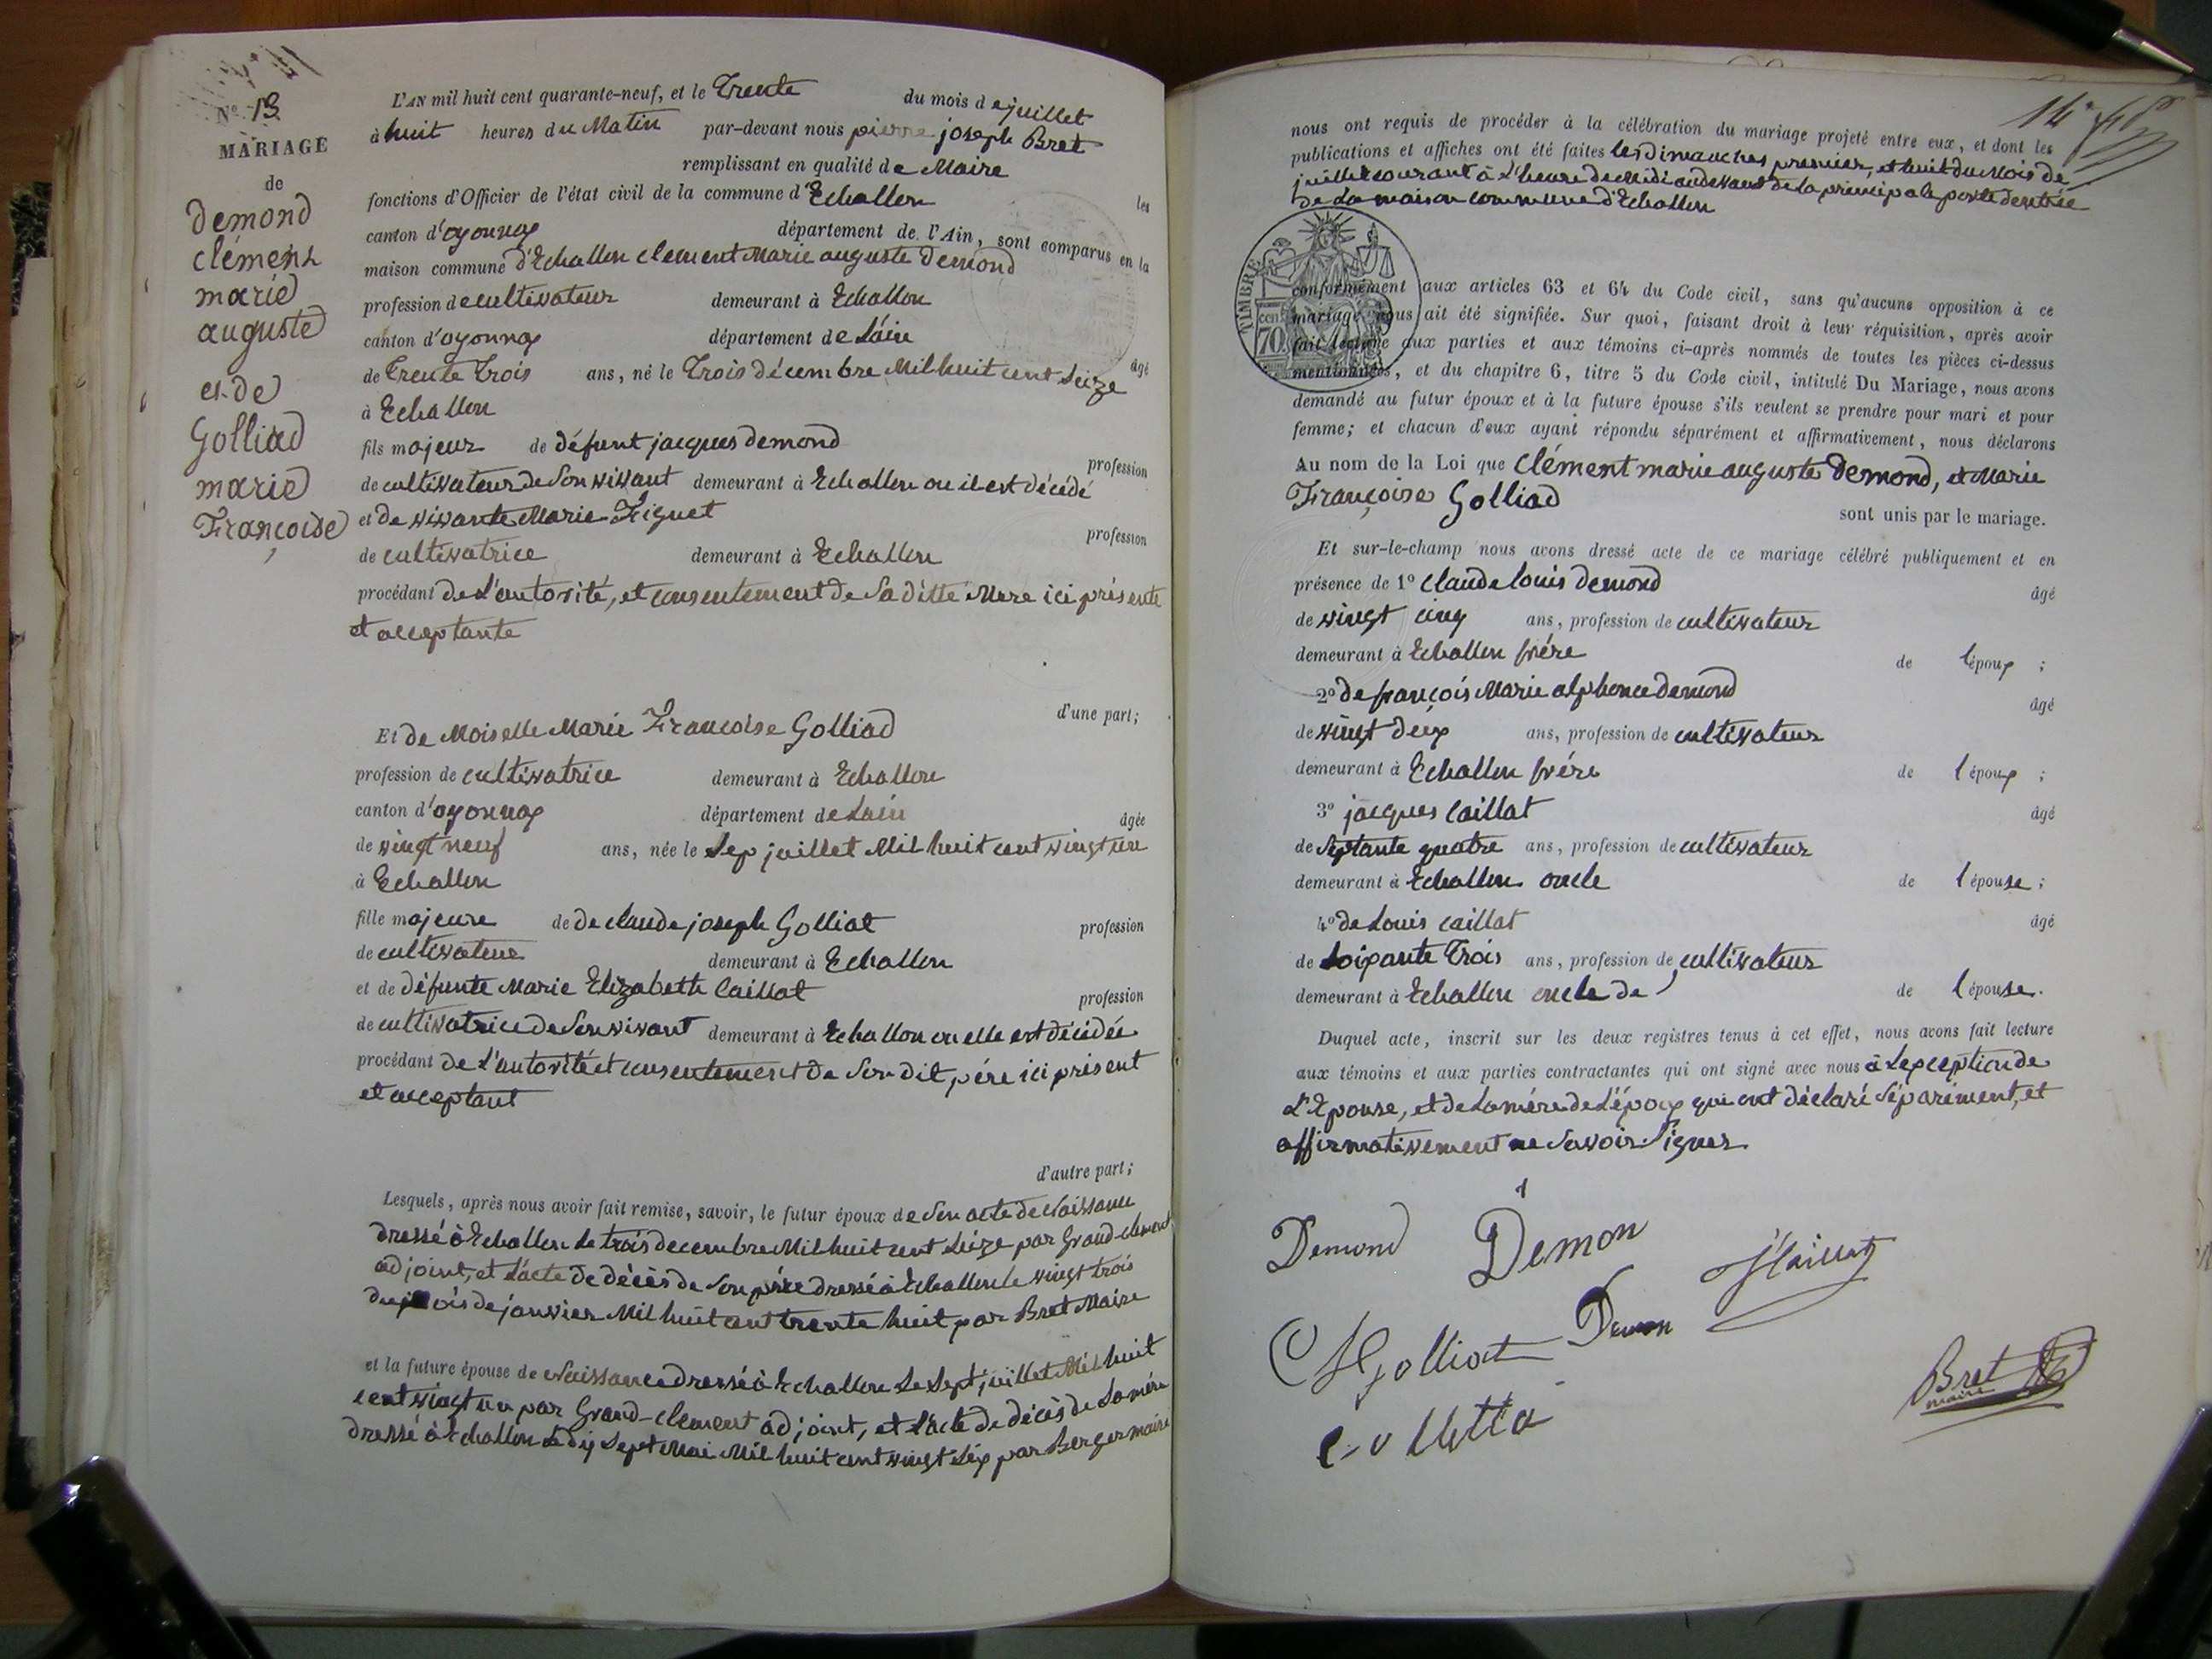 N° 13
MARIAGE
de
Demond
clément
marie
auguste
et de
Golliad
marie
Françoise
L'AN mil huit cent quarante-neuf, et le Trente du mois de juillet
à huit heures du Matin par-devant nous pierre joseph Bret
remplissant en qualité de Maire les
fonctions d'Officier de l'état civil de la commune d'Echallon
canton d'oyonnax département de l'Ain, sont comparus en la
maison commune d'Echallon clement Marie auguste Demond
profession de cultivateur demeurant à Echallon
canton d'oyonnax département de Láin âgé
de Trente Trois ans, né le Trois décembre Mil huit cent Seize
à Echallon
fils majeur de défunt jacques demond profession
de cultivateur de Son vivant demeurant à Echallon ou il est décédé
et de vivante Marie Figuet profession
de cultivatrice demeurant à Echallon
procédant de L'autorité, et consentement de Saditte Mere ici présente
et acceptante
d'une part;
Et de Moiselle Marie Françoise Golliad
profession de cultivatrice demeurant à Echallon
canton d'oyonnax département de Lain âgée
de vingt neuf ans, née le Sep juillet Mil huit cent vingt un
à Echallon
fille majeure de de claude joseph Golliat profession
de cultivateur demeurant à Echallon
et de défunte Marie Elizabeth Caillat profession
de cultivatrice de Son vivant demeurant à Echallon ou elle est décédée
procédant de L'autorité et consentement de Son dit père ici présent
et acceptant
d'autre part;
Lesquels, après nous avoir fait remise, savoir, le futur époux de Son acte de Naissance
dressé à Echallon Le trois decembre Mil huit cent Seize par Grand-clement
adjoint, et L'acte de décès de Son père dressé à Echallon le vingt trois
du mois de janvier Mil huit cent trente huit par Bret Maire
et la future épouse de Naissance dressé à Echallon Le Sept juillet Mil huit
cent vingt un par Grand-clement adjoint, et L'acte de décès de Sa mére
dressé à Echallon Le dix Sept Mai Mil huit cent vingt Six par Berger maire
14e
nous ont requis de procéder à la célébration du mariage projeté entre eux, et dont les
publications et affiches ont été faites les dimanches premier, et huit du Mois de
juillet courant à L'heure de Midi audevant de La principale porte dentrée
de La maison commune d'Echallon
TIMBRE
70 cent
conformément aux articles 63 et 64 du Code civil, sans qu'aucune opposition à ce
mariage nous ait été signifiée. Sur quoi, faisant droit à leur réquisition, après avoir
fait lecture aux parties et aux témoins ci-après nommés de toutes les pièces ci-dessus
mentionnées, et du chapitre 6, titre 5 du Code civil, intitulé Du Mariage, nous avons
demandé au futur époux et à la future épouse s'ils veulent se prendre pour mari et pour
femme; et chacun d'eux ayant répondu séparément et affirmativement, nous déclarons
Au nom de la Loi que Clément marie auguste Demond, et Marie
Françoise Golliad
sont unis par le mariage.
Et sur-le-champ nous avons dressé acte de ce mariage célébré publiquement et en
présence de 1° Claude Louis Demond âgé
de vingt cinq ans, profession de cultivateur
demeurant à Echallon frére de lépoux ;
2° de françois Marie alphonce demond âgé
de vingt deux ans, profession de cultivateur
demeurant à Echallon frére de lépoux ;
3° jacques Caillat âgé
de Septante quatre ans, profession de cultivateur
demeurant à Echallon oncle de lépouse ;
4° de Louis caillat âgé
de Soixante Trois ans, profession de cultivateur
demeurant à Echallon oncle de de lépouse.
Duquel acte, inscrit sur les deux registres tenus à cet effet, nous avons fait lecture
aux témoins et aux parties contractantes qui ont signé avec nous à Lexception de
L'Epouse, et de La mére de L'époux qui ont déclaré Séparément, et
affirmativement ne Savoir Signer
Demond Demon
Golliat Demon
Bret
maire